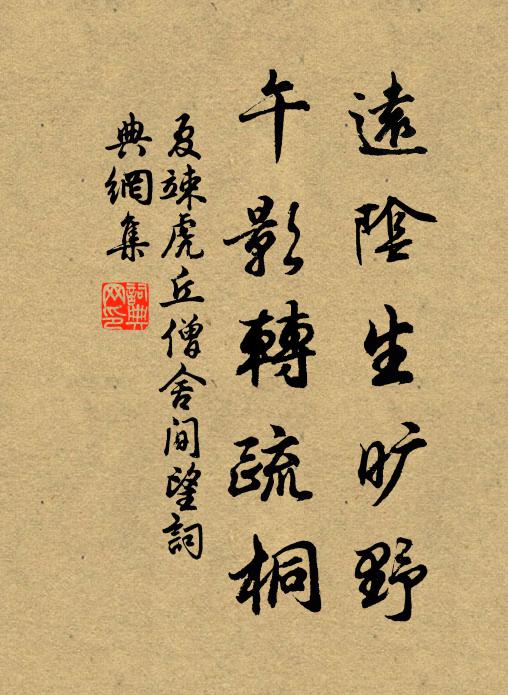 遠陰生旷野
午影轉疏桐
夏竦虎丘僧舍閒望詞
典網集
詞典网印